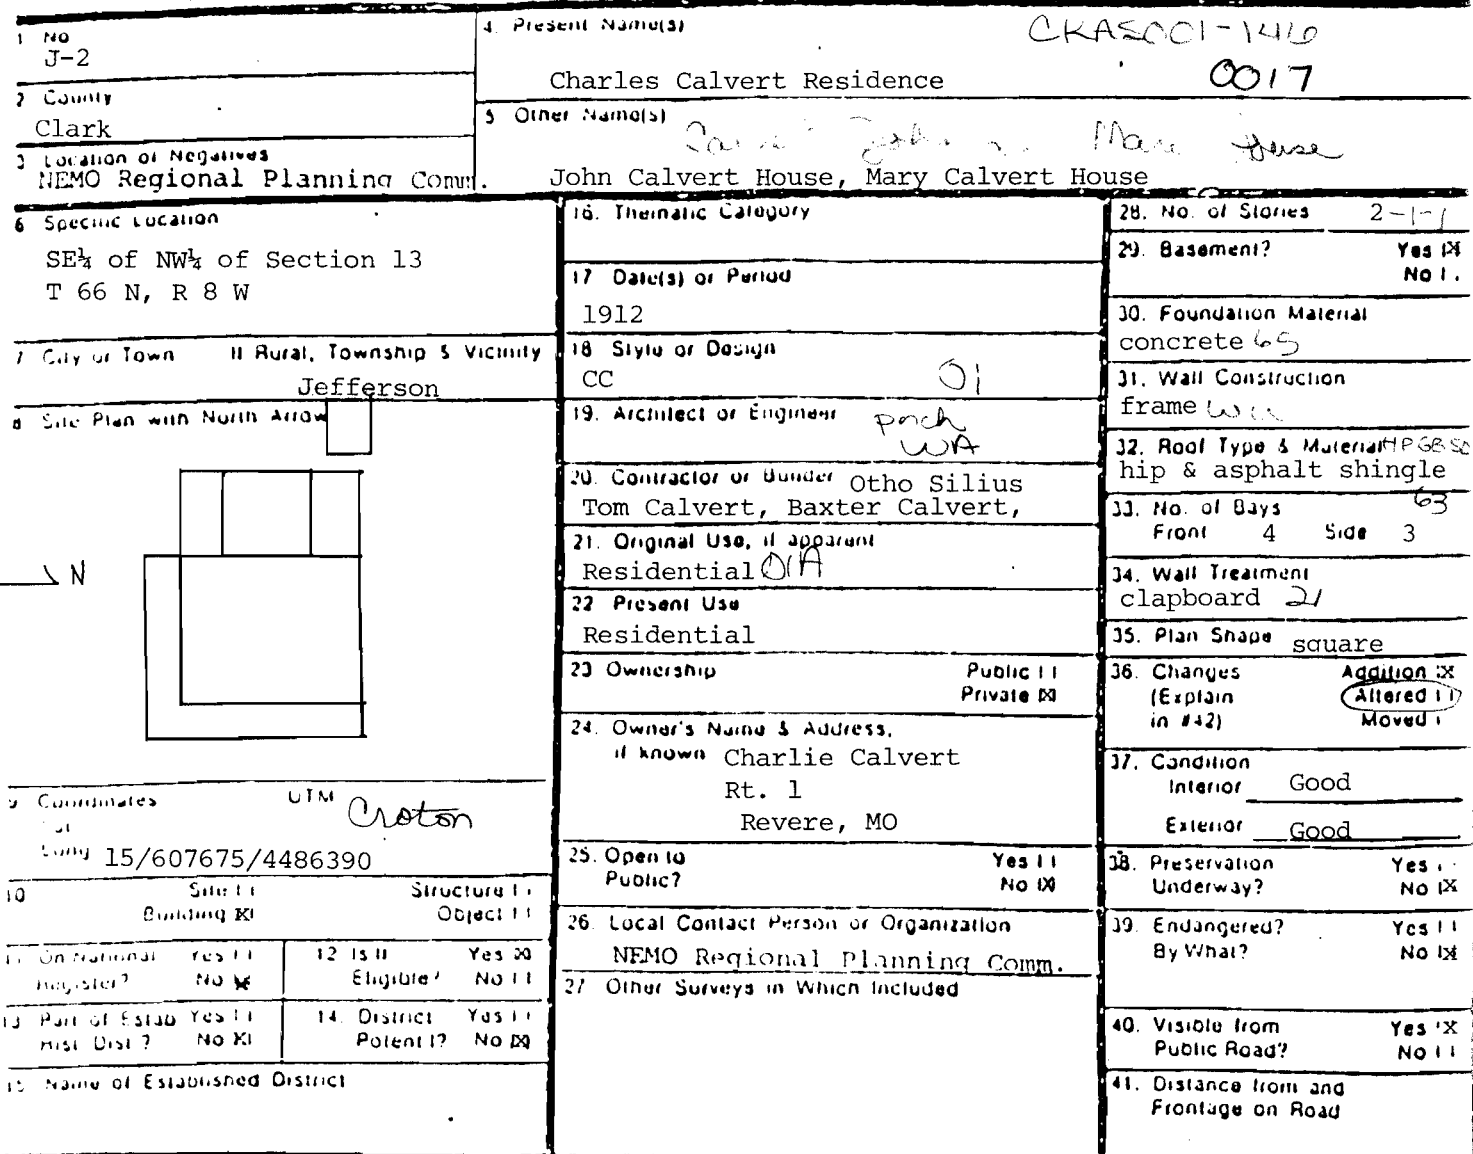 1 No
J-2
2 County
Clark
3 Location of Negatives
NEMO Regional Planning Comm.
4 Present Name(s)
CKAS001-146
Charles Calvert Residence
0017
5 Other Name(s)
John
House
John Calvert House, Mary Calvert House
6 Specific Location
SE¼ of NW¼ of Section 13
T 66 N, R 8 W
7 City or Town If Rural, Township & Vicinity
Jefferson
8 Site Plan with North Arrow
N
9 Coordinates UTM
Croton
Lat
Long 15/607675/4486390
10 Site [ ] Structure [ ]
Building [X] Object [ ]
11 On National Register? Yes [ ] No [X]
12 Is It Eligible? Yes [X] No [ ]
13 Part of Estab Hist Dist? Yes [ ] No [X]
14. District Potent'l? Yes [ ] No [X]
15 Name of Established District
16. Thematic Category
17 Date(s) or Period
1912
18 Style or Design
CC 01
19. Architect or Engineer
porch
WA
20. Contractor or Builder Otho Silius
Tom Calvert, Baxter Calvert,
21. Original Use, if apparent
Residential 01A
22 Present Use
Residential
23 Ownership Public [ ]
Private [X]
24. Owner's Name & Address,
if known Charlie Calvert
Rt. 1
Revere, MO
25. Open to Yes [ ]
Public? No [X]
26. Local Contact Person or Organization
NEMO Regional Planning Comm.
27 Other Surveys in Which Included
28. No. of Stories 2-1-1
29. Basement? Yes [X]
No [ ]
30. Foundation Material
concrete 65
31. Wall Construction
frame
32. Roof Type & Material HP GB SC
hip & asphalt shingle
63
33. No. of Bays
Front 4 Side 3
34. Wall Treatment
clapboard 21
35. Plan Shape square
36. Changes Addition [X]
(Explain Altered [ ]
in #42) Moved [ ]
37. Condition
Interior Good
Exterior Good
38. Preservation Yes [ ]
Underway? No [X]
39. Endangered? Yes [ ]
By What? No [X]
40. Visible from Yes [X]
Public Road? No [ ]
41. Distance from and
Frontage on Road